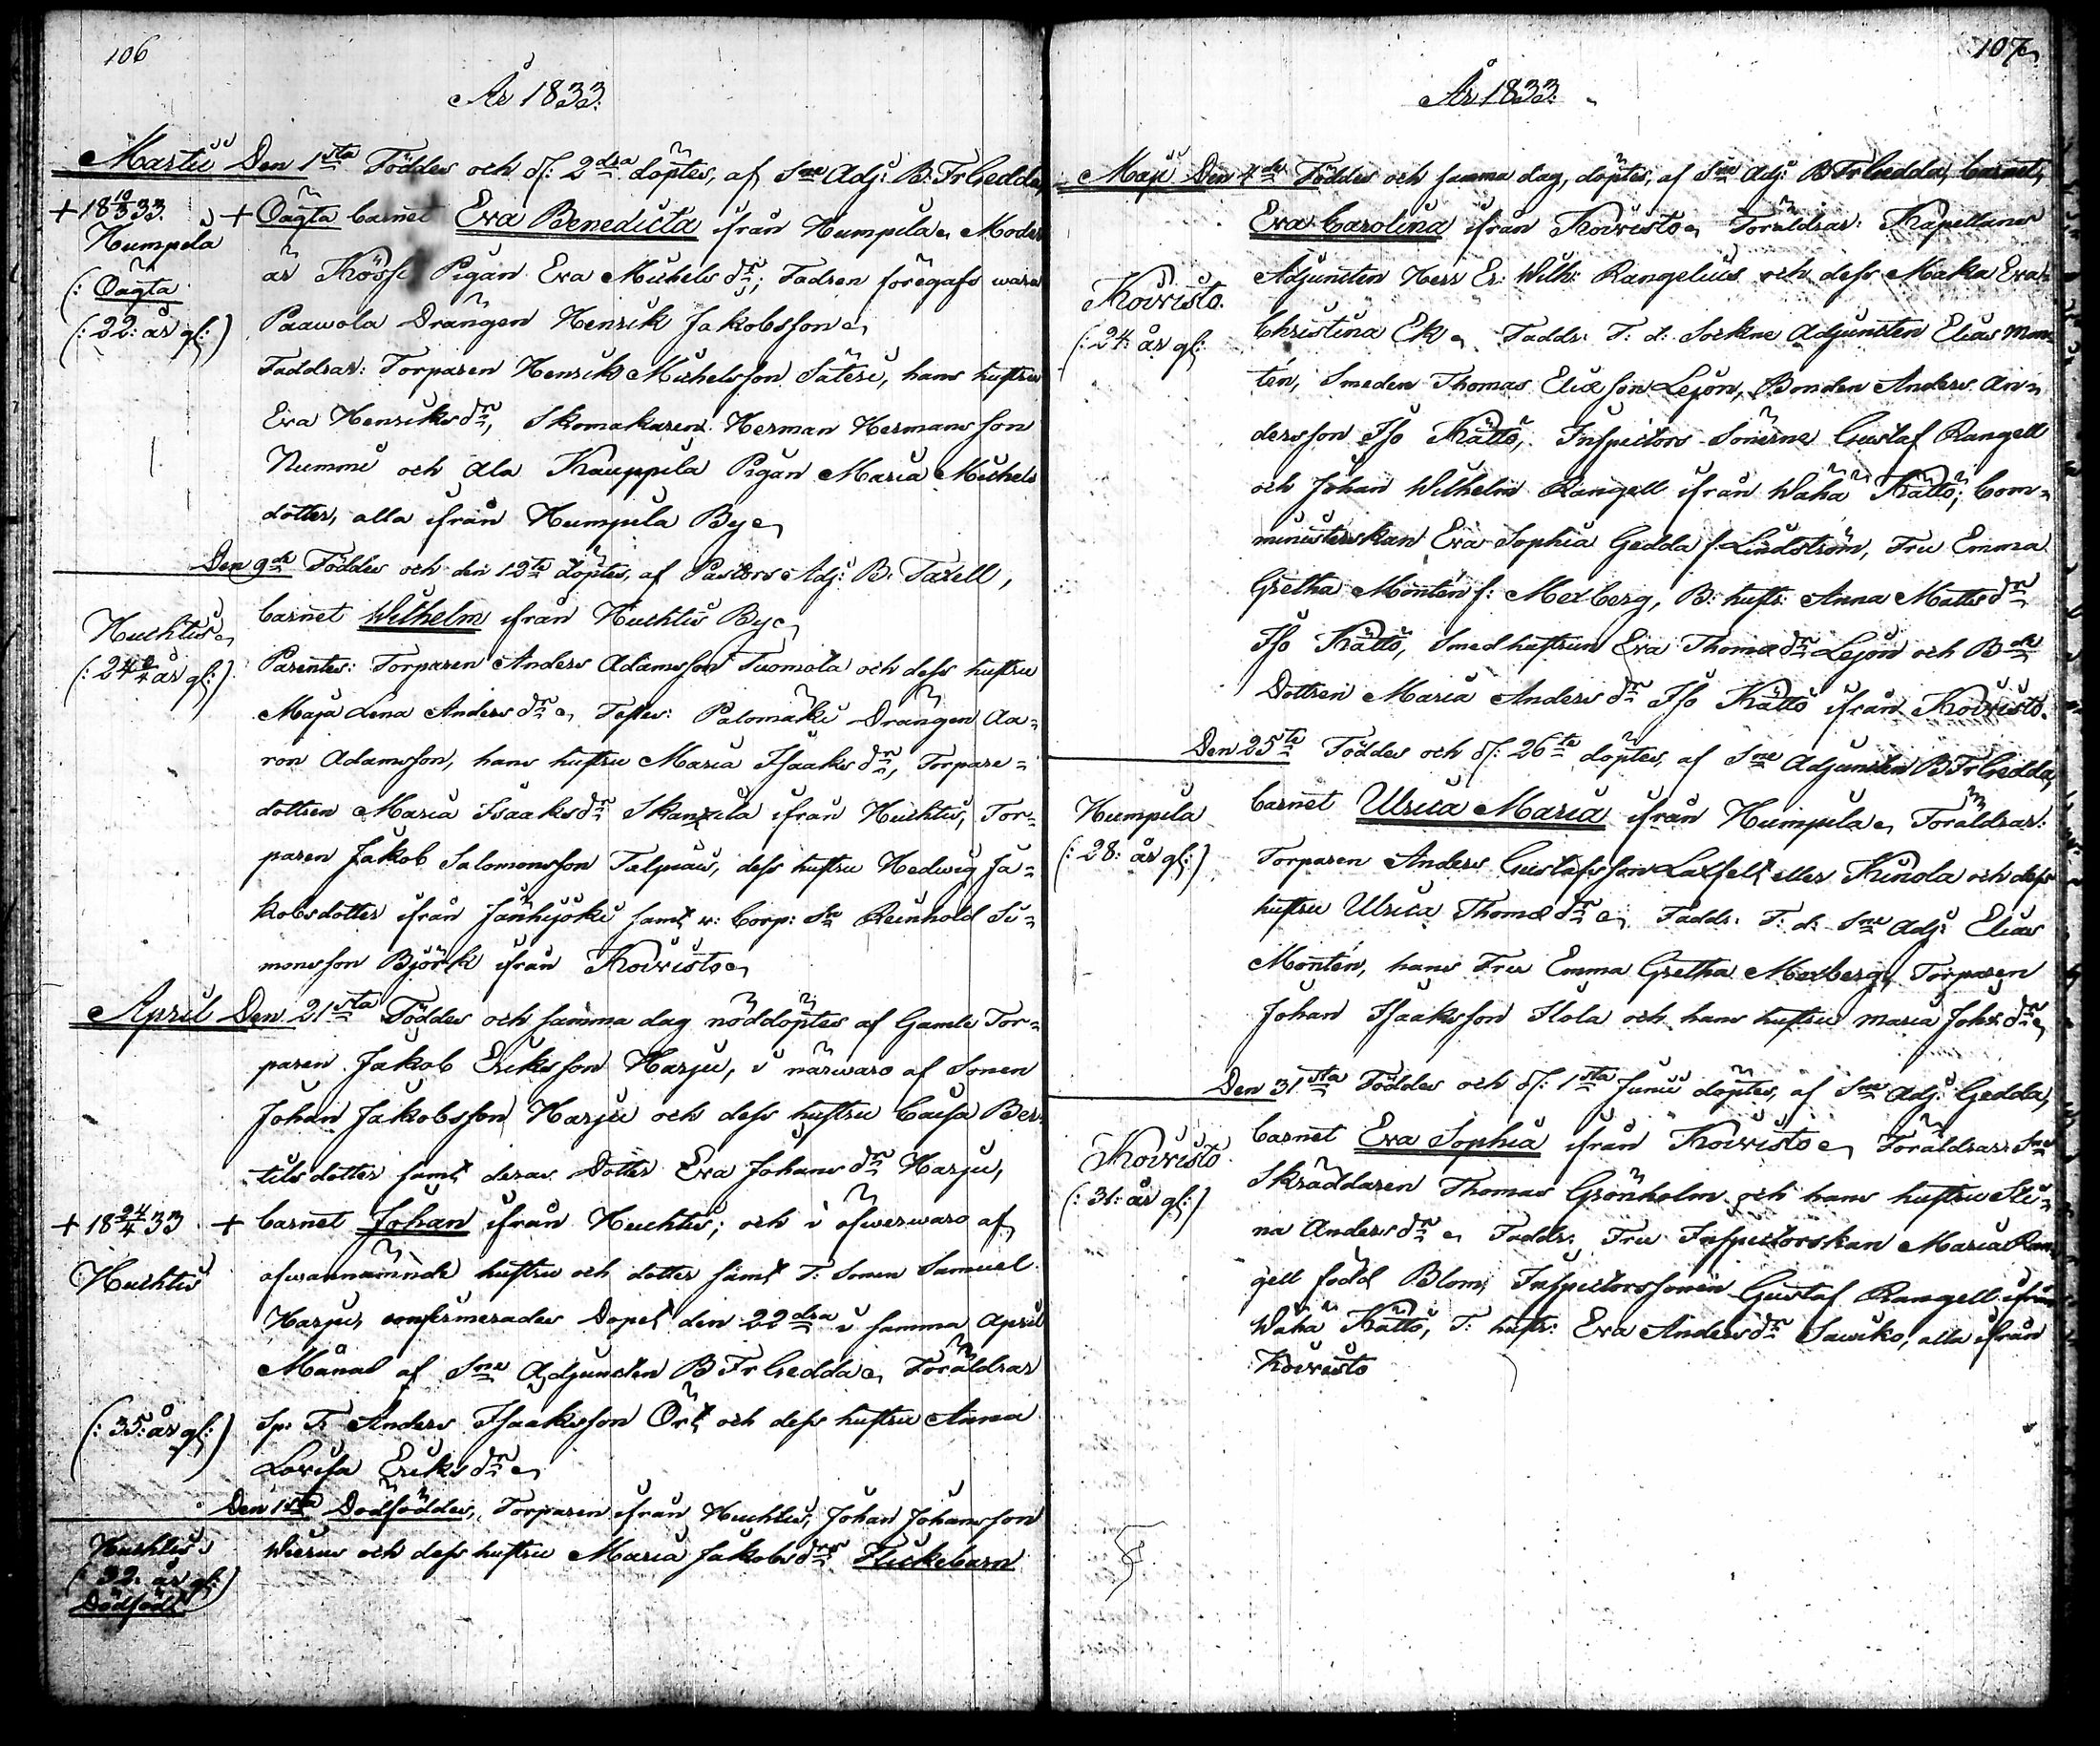 106
År 1833.
Martii Den 1sta Föddes och d: 2dra döptes, af Sne Adj: B: Fr Gedda
+ 18 10/3 33. + Oägta barnet Eva Benedicta ifrån Humpila, Moder
Humpila
är Kössi Pigan Eva Michels dr; Fadren föregafs wara
(: Oägta
Paawola Drängen Henrik Jakobsson
(: 22: år gl:)
Faddrar: Torparen Henrik Michelsson Säteri, hans hustru
Eva Henriksdr, Skomakaren Herman Hermansson
Nummi och Ala Kauppila Pigan Maria Michels
dotter, alla ifrån Humpila By
Den 9de Föddes och den 12te döptes, af Pastors Adj: B: Taxell,
Huchtis
barnet Wilhelm ifrån Huchtis By
(: 24 år gl:)
Parentes: Torparen Anders Adamsson Tuomola och dess hustru
Maja Lena Anders dr Testes: Palomäki Drängen Aa=
ron Adamsson, hans hustru Maria Isaaks dr, Torpare=
dottren Maria Isaaksdr Skanzila ifrån Huchtis, Tor=
paren Jakob Salomonsson Talpiais, dess hustru Hedwig Ja=
kobsdotter ifrån Jänhijoki samt w: Corp: Sn Reinhold Si=
monsson Björk ifrån Koivisto
April Den 21sta Föddes och samma dag nöddöptes af Gamle Tor=
paren Jakob Eriksson Harju, i närwaro af Sonen
Johan Jakobsson Harju och dess hustru Caisa Ber=
tilsdotter samt deras Dotter Eva Johans dr Harju,
+ 18 24/4 33 + barnet Johan ifrån Huchtis; och i öfwerwaro af
Huchtis
ofwannämnde hustru och dotter samt T: Sonen Samuel
Harju, confirmerades Dopet den 22dra i samma April
Månad af Sne Adjuncten B Fr Gedda Föräldrar
(: 35: år gl:)
Sp: T: Anders Isaaksson Ört och dess hustru Anna
Lovisa Eriks dr
Den 1sta Dödföddes, Torparen ifrån Huchtis, Johan Johansson
Huchtis
Wierus och dess hustru Maria Jakobs drs Flickebarn
(: 32: år gl:)
Dödfödt
107
År 1833.
Maji Den 4de Föddes och samma dag, döptes, af Sne Adj: B Fr Gedda, barnet,
Eva Carolina ifrån Koivisto Föräldrar: Kapellans
Koivisto.
Adjuncten Herr Er: Wilh: Rangelius och dess Maka Eva
(: 24: år gl:
Christina Ek Faddr: T: d: Sockne Adjuncten Elias Mon=
tén, Smeden Thomas Eliæ son Lejon, Bonden Anders An=
dersson Iso Kättö, Inspectors Sönerne Gustaf Rangell
och Johan Wilhelm Rangell ifrån Wähä Kättö; Com=
ministerskan Eva Sophia Gedda f: Lindström, Fru Emma
Gretha Montén f: Mexberg, B: hustr: Anna Matts dr
Iso Kättö, Smedhustrun Eva Thomæ dr Lejon och Bde
Dottren Maria Anders dr Iso Kättö ifrån Koivisto.
Den 25te Föddes och d: 26te döptes, af Sne Adjuncten B Fr Gedda,
Humpila
barnet Ulrica Maria ifrån Humpila Föräldrar:
(: 28: år gl:)
Torparen Anders Gustafsson Laxfelt eller Kinola och dess
hustru Ulrica Thomæ dr Faddr: T: d: Sne Adj: Elias
Montén, hans Fru Emma Gretha Mexberg, Torparen
Johan Isaaksson Ilola och hans hustru Maria Johs dr
Den 31sta Föddes och d: 1sta Junii döptes, af Sne Adj: Gedda,
Koivisto
barnet Eva Sophia ifrån Koivisto Föräldrar: Sne
(: 31: år gl:)
Skräddaren Thomas Grönholm och hans hustru Sti=
na Anders dr Faddr: Fru Inspectorskan Maria Ran=
gell född Blom, Inspectorssonen Gustaf Rangell ifrån
Wähä Kättö, T: hustr: Eva Anders dr Sawiko, alla ifrån
Koivisto